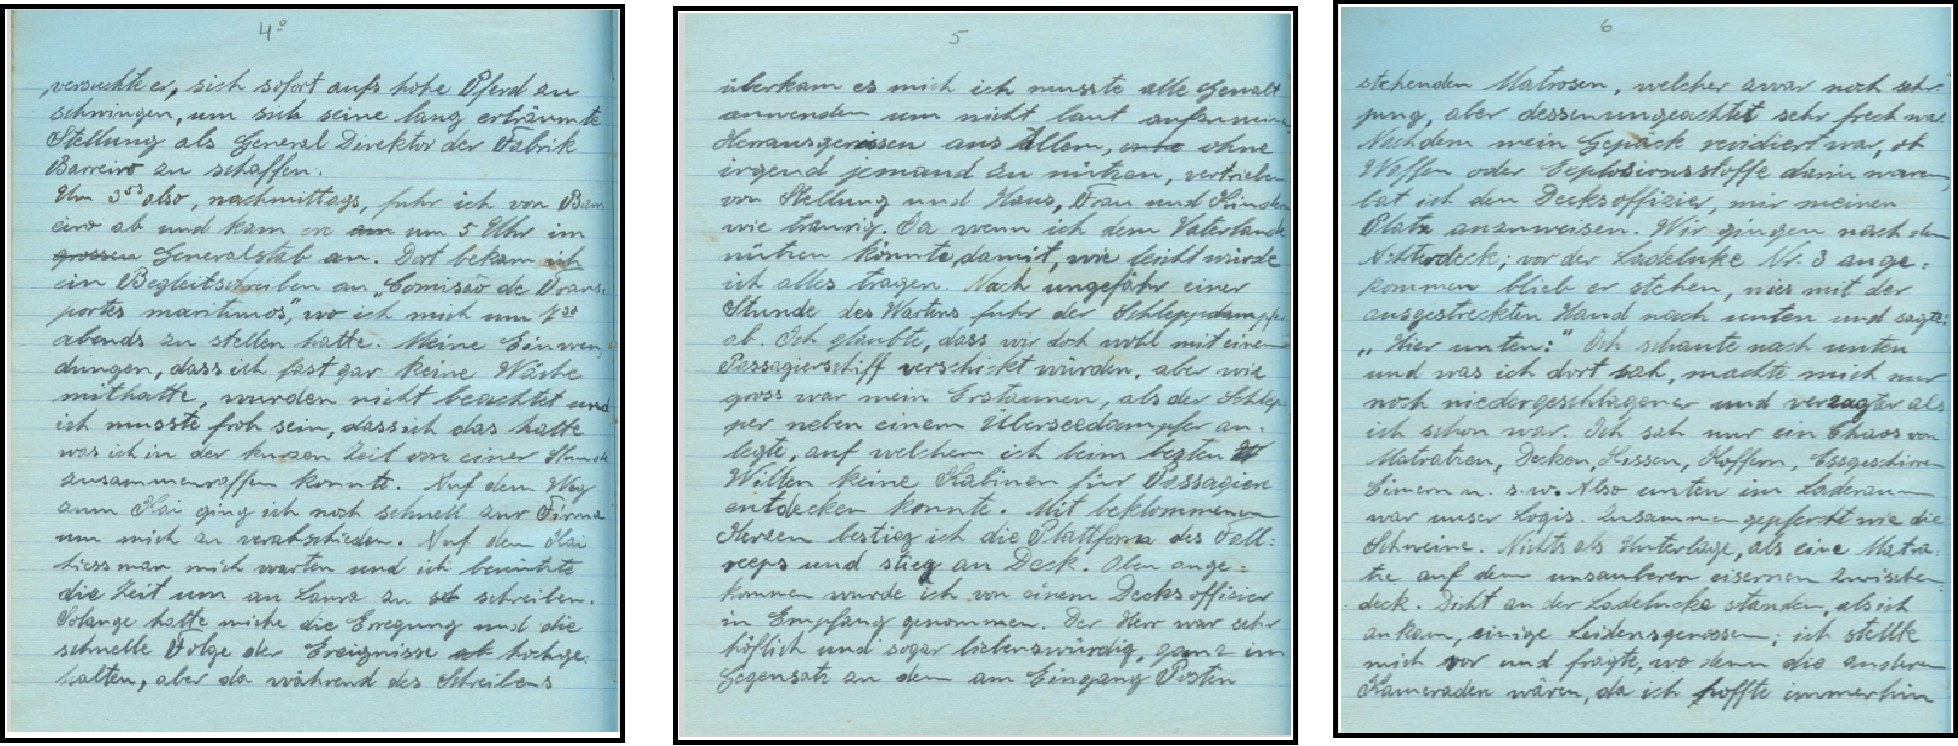 4º
versuchte er, sich sofort aufs hohe Pferd zu
schwingen, um sich seine lang erträumte
Stellung als General Direktor der Fabrik
Barreiro zu schaffen.
Um 3⁵⁵ also, nachmittags, fuhr ich von Barr-
eiro ab und kam um 5 Uhr im
grossen Generalstab an. Dort bekam ich
ein Begleitschreiben an „Comissão de Trans-
portes maritimos", wo ich mich um
abends zu stellen hatte. Meine Einwen-
dungen, dass ich fast gar keine Wäsche
mithatte, wurden nicht beachtet und
ich musste froh sein, dass ich das hatte
was ich in der kurzen Zeit von einer Stunde
zusammenraffen konnte. Auf dem Weg
zum Kai ging ich noch schnell zur Firma
um mich zu verabschieden. Auf dem Kai
liess man mich warten und ich benutzte
die Zeit um an Laura zu schreiben.
Solange hatte mich die Erregung und die
schnelle Folge der Ereignisse hochge-
halten, aber da während des Schreibens
5
überkam es mich ich musste alle Gewalt
anwenden um nicht laut aufzuweinen
Herausgerissen aus Allem, ohne
irgend jemand zu nützen, vertrieben
von Stellung und Haus, Frau und Kindern
wie traurig. Ja wenn ich dem Vaterlande
nützen könnte, damit, wie leicht würde
ich alles tragen. Nach ungefähr einer
Stunde des Wartens fuhr der Schleppdampfer
ab. Ich glaubte, dass wir doch wohl mit einem
Passagierschiff verschickt würden, aber wie
gross war mein Erstaunen, als der Schlep-
per neben einem Überseedampfer an-
legte, auf welchem ich beim besten
Willen keine Kabinen für Passagiere
entdecken konnte. Mit beklommenem
Herzen bestieg ich die Plattform des Fall-
reeps und stieg an Deck. Oben ange-
kommen wurde ich von einem Decksoffizier
in Empfang genommen. Der Herr war sehr
höflich und sogar liebenswürdig, ganz im
Gegensatz zu dem am Eingang Posten
6
stehenden Matrosen, welcher zwar noch sehr
jung, aber dessenungeachtet sehr frech war.
Nachdem mein Gepäck revidiert war, ob
Waffen oder Explosionsstoffe darin waren,
bat ich den Decksoffizier, mir meinen
Platz anzuweisen. Wir gingen nach dem
Achterdeck; vor der Ladeluke Nr. 3 ange-
kommen blieb er stehen, wies mit der
ausgestreckten Hand nach unten und sagte:
„Hier unten!" Ich schaute nach unten
und was ich dort sah, machte mich nur
noch niedergeschlagener und verzagter als
ich schon war. Ich sah nur ein Chaos von
Matratzen, Decken, Kissen, Koffern, Essgeschirren
Eimern u. s. w. Also unten im Laderaum
war unser Logis. Zusammengepfercht wie die
Schweine. Nichts als Unterlage, als eine Matra-
tze auf dem unsauberen eisernen Zwischen-
deck. Dicht an der Ladeluke standen, als ich
ankam, einige Leidensgenossen; ich stellte
mich vor und fragte, wo denn die anderen
Kameraden wären, da ich hoffte immerhin